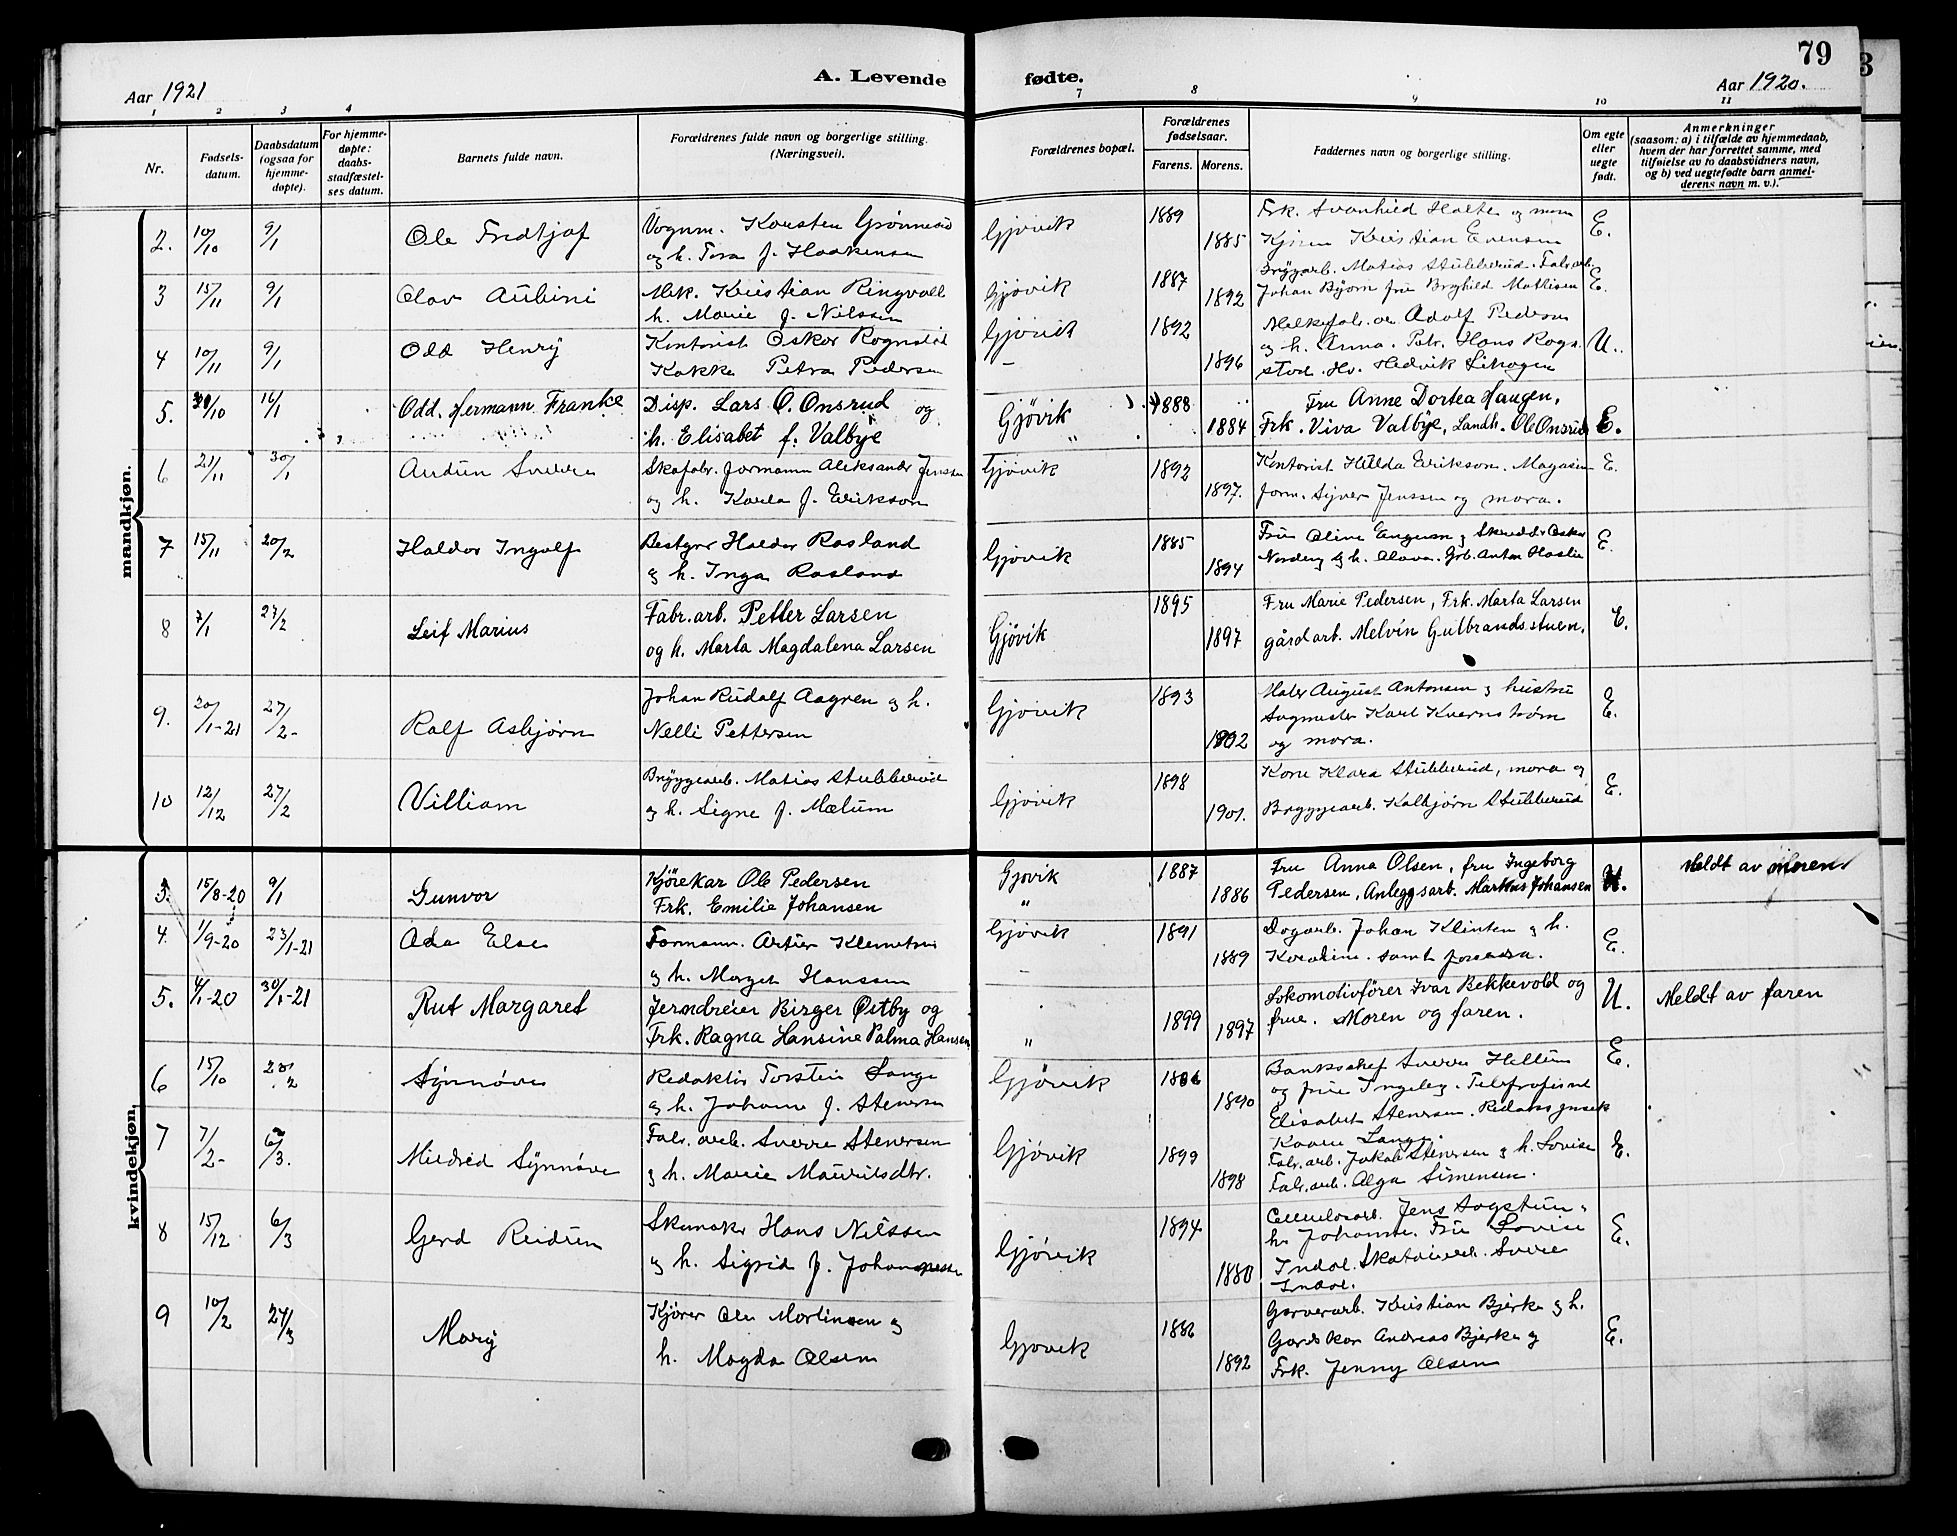 79
A. Levende fødte.
Aar 1921
Aar 1920.
1 2 3 4 7 8 9 10 11
Nr.
Fødsels-datum.
Daabsdatum (ogsaa for hjemme-døpte).
For hjemme-døpte: daabs-stadfæstel-ses datum.
Barnets fulde navn.
Forældrenes fulde navn og borgerlige stilling. (Næringsvei).
Forældrenes bopæl.
Forældrenes fødselsaar.
Farens. Morens.
Faddernes navn og borgerlige stilling.
Om egte eller uegte født.
Anmerkninger
(saasom: a) i tilfælde av hjemmedaab,
hvem der har forrettet samme, med
tilføielse av to daabsvidners navn,
og b) ved uegtefødte barn anmel-
derens navn m. v.).
mandkjøn.
2. 10/10 9/1 Ole Fridtjof Vognm. Karsten Grønnerud Gjøvik 1889 Frk. Svanhild Holte og mora E.
og h. Tora f. Haakensen 1885 Kjører Kristian Evensen
Bryggarb. Matias Stubberud. Fabr.arb.
3 15/11 9/1 Olav Aubini Mek. Kristian Ringvoll Gjøvik 1887 Johan Bjørn fru Borghild Mathisen E.
h. Marie f. Nilssen 1892
4 10/11 9/1 Odd Henry Kontorist Oskar Rognstad Gjøvik 1892 Adolf Pedersen
og h. Anna. Hans Rogn- U.
Kokke Petra Pedersen – 1896 stad. Hedvik
5. 30/10 16/1 Odd. Hermann Franke Disp. Lars O. Onsrud og Gjøvik 1888 Fru Anne Dortea Haugen,
h. Elisabet f. Valbye " 1884 Frk. Viva Valbye, Landh. Ole Onsrud E.
6 21/11 30/1 Audun Sverre Skofabr. formann Aleksander Jenssen Gjøvik 1892 Kontorist Hilda Erikson. Magasin E.
og h. Karla f. Erikson 1897. form. Syver Jenssen og mora.
7 15/11 20/2 Haldor Ingolf Bestyrer Haldor Rosland Gjøvik 1885 Fru Oline Engesen og Skredder Oskar E.
og h. Inga Rosland 1894 Norderg og h. Olava. Grb. Anton Haslie
8 7/1 27/2 Leif Marius Fabr. arb. Petter Larsen Gjøvik 1895 Fru Marie Pedersen, Frk. Marta Larsen E.
og h. Marta Magdalena Larsen 1897 gårdarb. Melvin Gulbrandsstuen.
9. 20/1-21 27/2- Rolf Asbjørn Johan Rudolf Aagren og h. Gjøvik 1893 Maler August Antonsen og hustru E.
Nelli Pettersen Sagmester Karl Kvernstrøm
1902 og mora.
10 12/12 27/2 Villiam Bryggearb. Matias Stubberud Gjøvik 1898 Kone Klara Stubberud, mora og E.
og h. Signe f. Mælum 1901. Bryggearb. Kolbjørn Stubberud
kvindekjøn.
3. 15/8-20 9/1 Gunvor Kjørekar Ole Pedersen Gjøvik 1887 Fru Anna Olsen, fru Ingeborg Meldt av moren
Frk. Emilie Johansen " 1886 Pedersen, Anleggsarb. Martinus Johansen U.
4. 1/9-20 23/1-21 Ada Else Formann. Artur Klemetsen Gjøvik 1891 Dagarb. Johan Klinken og h. E.
og h. Margit Hanssen – 1889 Karoline. samt foreldra.
5. 4/1-20 30/1-21 Rut Margaret Jerndreier Birger Østby og Lokomotivfører Ivar Bekkevold og U. Meldt av faren
Frk. Ragna Hansine Palma Hansen " 1899 1897 frue. Moren og faren.
6 15/10 20/2 Synnøve Redaktør Torstein Lange Gjøvik 1886 Banksjef Sverre Hellum E.
og h. Johanne f. Stenersen 1890 og frue Ingeborg. Telefonist
Elisabet Stenersen. Redaksj.sek
Kaare Lange.
7 7/2- 6/3. Mildrid Synnøve Fabr. arb. Sverre Stenersen Gjøvik 1899 Fabr. arb. Jakob Stenersen og h. Lovise E.
og h. Marie Mauritsdtr. 1898 Fabr. arb. Olga Simensen.
8 15/12 6/3 Gerd Reidun Skomaker Hans Nilssen Gjøvik 1894 Cellulosarb. Jens Sagstuen og
h. Johanne. Fru Lovise E.
og h. Sigrid f. Johannessen 1880 Indal. Skotøiarb. Sverre
Indal.
9 10/2 27/3 Mary Kjører Ole Martinsen og Gjøvik 1886 Garverarb. Kristian Bjerke og h. E.
Gardskar Andreas Bjerke og
h. Magda Olsen 1892 Frk. Jenny Olsen